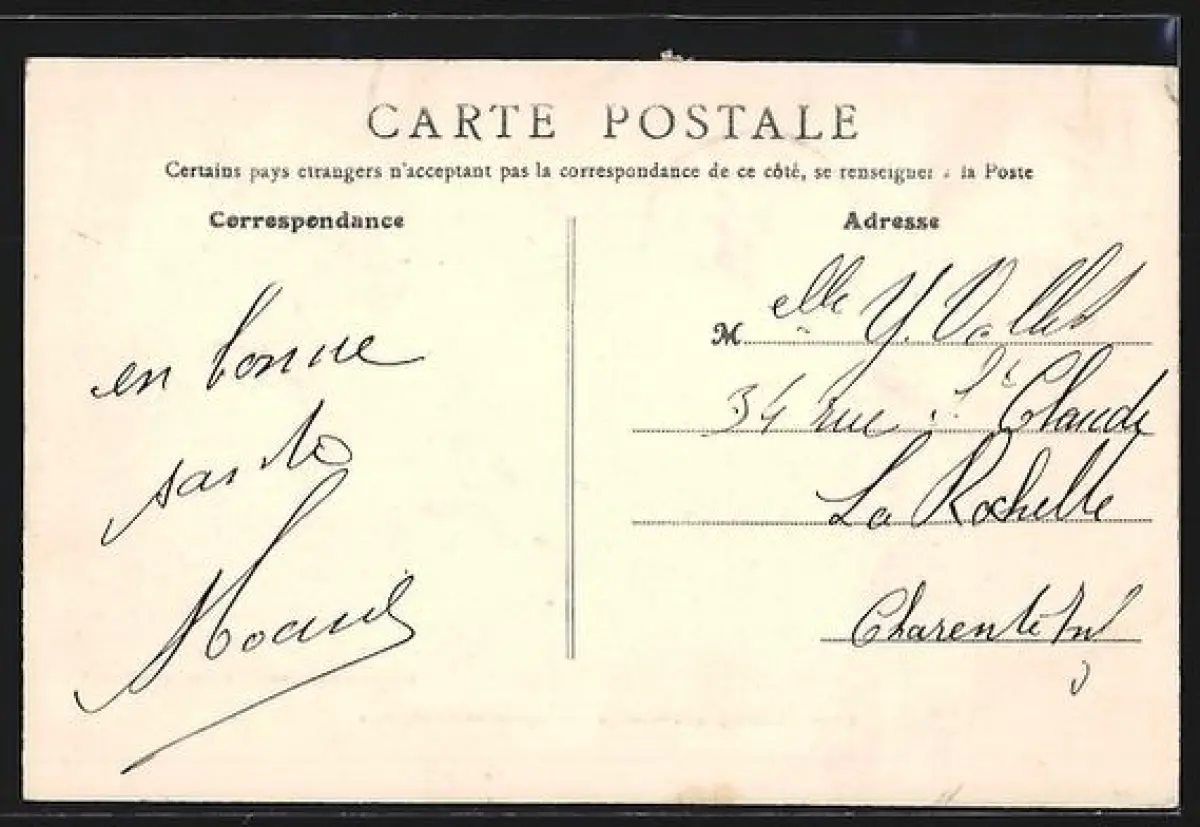 CARTE POSTALE
Certains pays etrangers n'acceptant pas la correspondance de ce côté, se renseigner a la Poste
Correspondance
en bonne
santé
Adresse
Melle Y. Vallet
34 rue St Claude
La Rochelle
Charente Inf